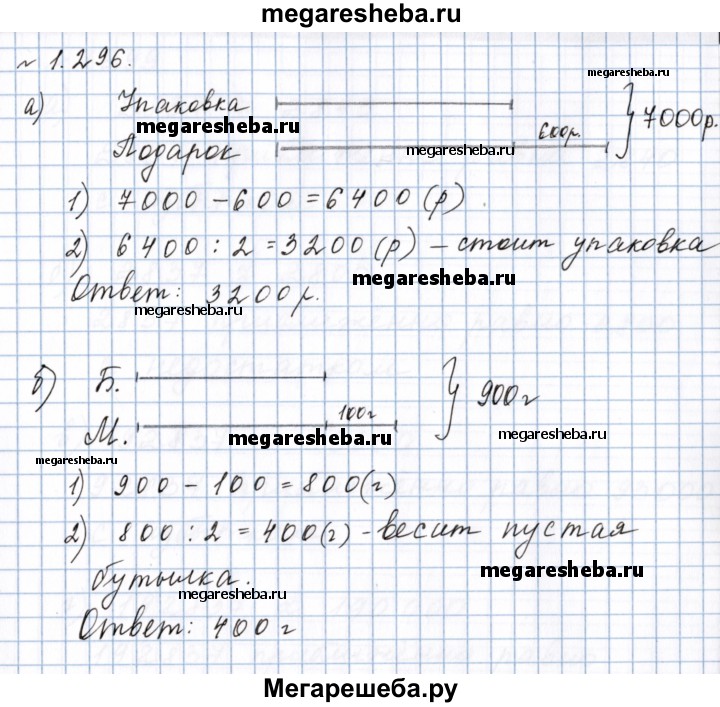 megaresheba.ru
№ 1.296.
megaresheba.ru
а) Упаковка
megaresheba.ru
600р. } 7000р.
Подарок
megaresheba.ru
1) 7000 - 600 = 6400 (р)
2) 6400 : 2 = 3200 (р) - стоит упаковка
megaresheba.ru
Ответ: 3200р.
megaresheba.ru
б) Б.
100г } 900г
М.
megaresheba.ru
megaresheba.ru
megaresheba.ru
1) 900 - 100 = 800(г)
2) 800 : 2 = 400(г) - весит пустая
бутылка.
megaresheba.ru
Ответ: 400 г
megaresheba.ru
Мегарешеба.ру